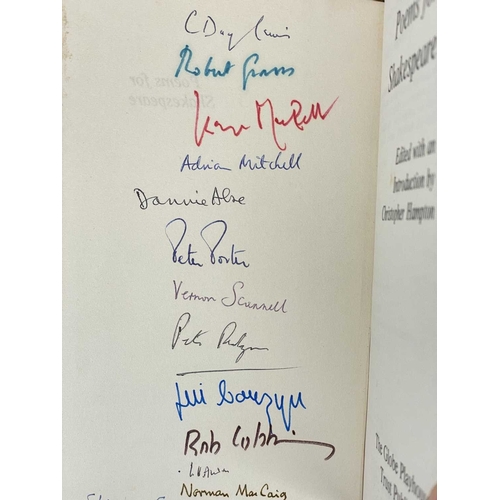 C Day Lewis
Robert Graves
Adrian Mitchell
Dannie Abse
Peter Porter
Vernon Scannell
Peter
Rob Cobbing
Norman MacCaig
Poems for
Shakespeare
Poems for
Shakespeare
Edited with an
Introduction by
Christopher Hampton
The Globe Playhouse
Trust